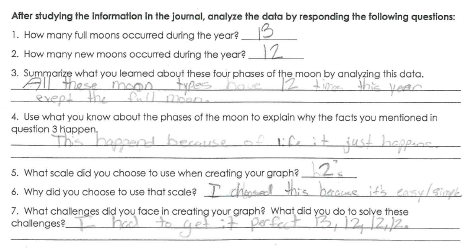 After studying the information in the journal, analyze the data by responding the following questions:
1. How many full moons occurred during the year? 13
2. How many new moons occurred during the year? 12
3. Summarize what you learned about these four phases of the moon by analyzing this data.
All these moon types have 12 time this year
exept the full moon.
4. Use what you know about the phases of the moon to explain why the facts you mentioned in
question 3 happen.
This happend because of life it just happens.
5. What scale did you choose to use when creating your graph? 2's
6. Why did you choose to use that scale? I choosed this because it's easy/simple
7. What challenges did you face in creating your graph? What did you do to solve these
challenges? I had to get it perfect 13, 12, 12, 12.